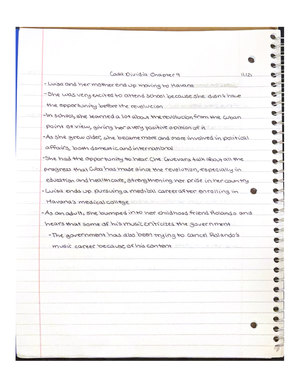 Cuba Dividia Chapter 9
- Luisa and her mother end up moving to Havana
- She was very excited to attend school because she didn't have
the opportunity before the revolution
- In school, she learned a lot about the revolution from the Cuban
point of view, giving her a very positive opinion of it
- As she grew older, she became more and more involved in political
affairs, both domestic and international
- She had the opportunity to hear Che Guevara talk about all the
progress that Cuba had made since the revolution, especially in
education and healthcare, strengthening her pride in her country
- Luisa ends up pursuing a medical career after enrolling in
Havana's medical college
- As an adult, she bumped into her childhood friend Rolando and
hears that some of his music criticizes the government
- The government has also been trying to cancel Rolando's
music career because of his content